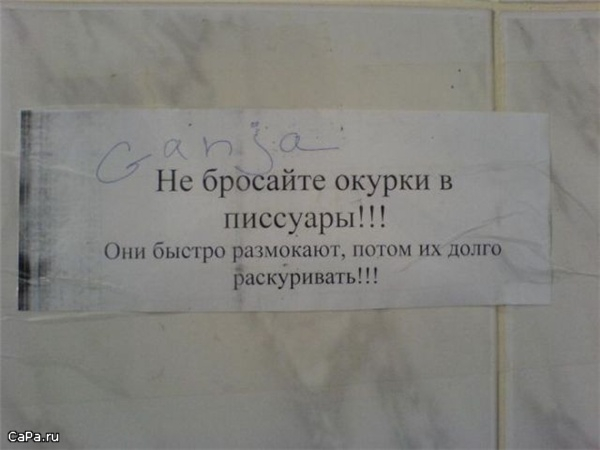 Ganja
Не бросайте окурки в
писсуары!!!
Они быстро размокают, потом их долго
раскуривать!!!
CaPa.ru